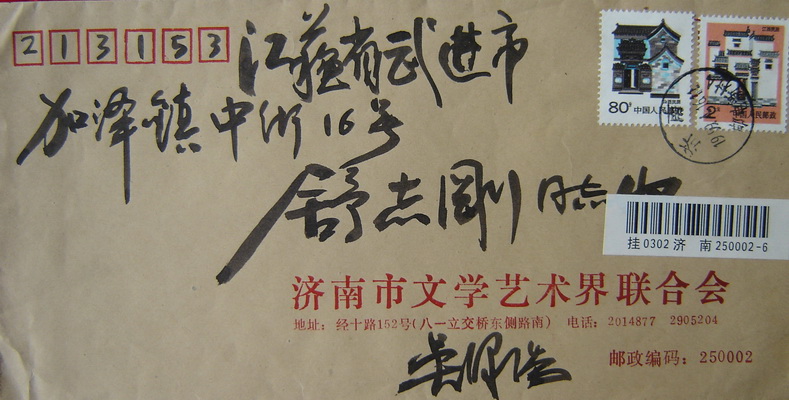 213153
江蘇省武进市
加泽鎮中街16号
舒志刚同志收
80分 中国人民邮政
2分 中国人民邮政
挂0302济 南250002-6
济南市文学艺术界联合会
地址：经十路152号(八一立交桥东侧路南) 电话：2014877 2905204
邮政编码：250002